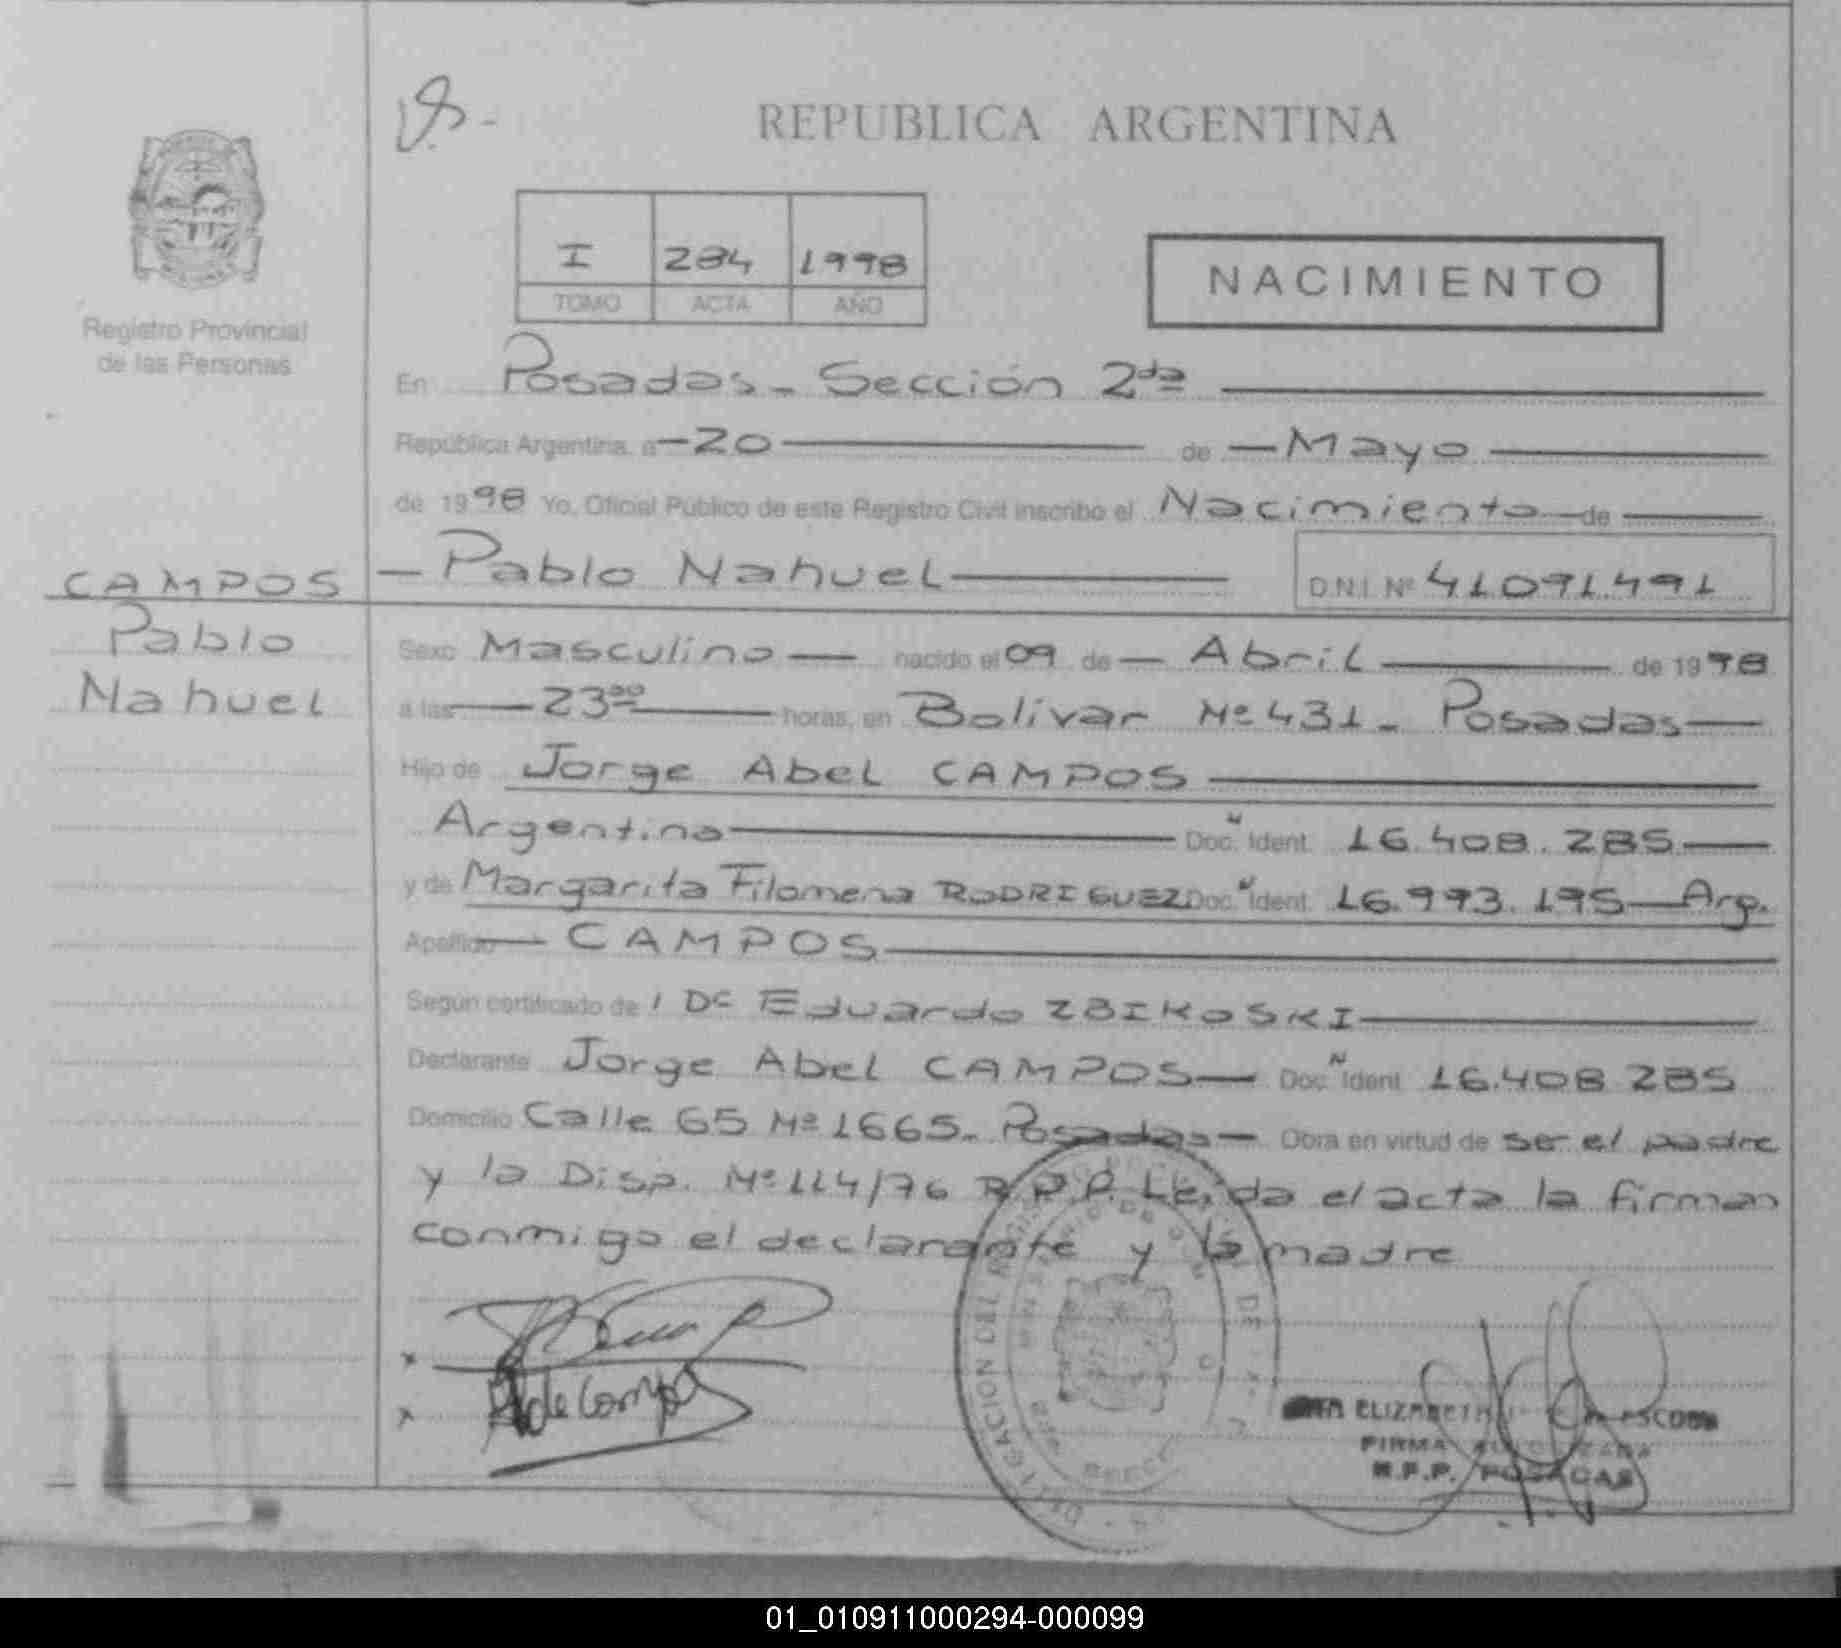 REPUBLICA ARGENTINA
I 284 1998
TOMO ACTA AÑO
NACIMIENTO
Registro Provincial
de las Personas
En Posadas - Sección 2da
República Argentina, a 20 de Mayo
de 1998 Yo, Oficial Público de este Registro Civil inscribo el Nacimiento de
CAMPOS
Pablo
Nahuel
Pablo Nahuel D.N.I. Nº 41.091.491
Sexo Masculino nacido el 09 de Abril de 1998
a las 23 00 horas, en Bolivar Nº 431 - Posadas
Hijo de Jorge Abel CAMPOS
Argentina Doc. N Ident. 16.408.285
y de Margarita Filomena RODRIGUEZ Doc. N Ident. 16.993.195 Arg.
Apellido CAMPOS
Según certificado de Eduardo ZBIKOSKI
Declarante Jorge Abel CAMPOS Doc. N Ident. 16.408.285
Domicilio Calle 65 Nº 1665 - Posadas Obra en virtud de ser el padre
y la Disp. Nº 114/76 R.P.P. Leida el acta la firman
conmigo el declarante y la madre
ELIZABETH
FIRMA AUTORIZADA
R.P.P. POSADAS
01_010911000294-000099